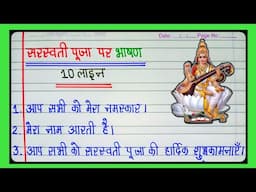 सरस्वती पूजा पर भाषण
10 लाइन
1. आप सभी को मेरा नमस्कार।
2. मेरा नाम आरती है।
3. आप सभी को सरस्वती पूजा की हार्दिक शुभकामनाएँ।